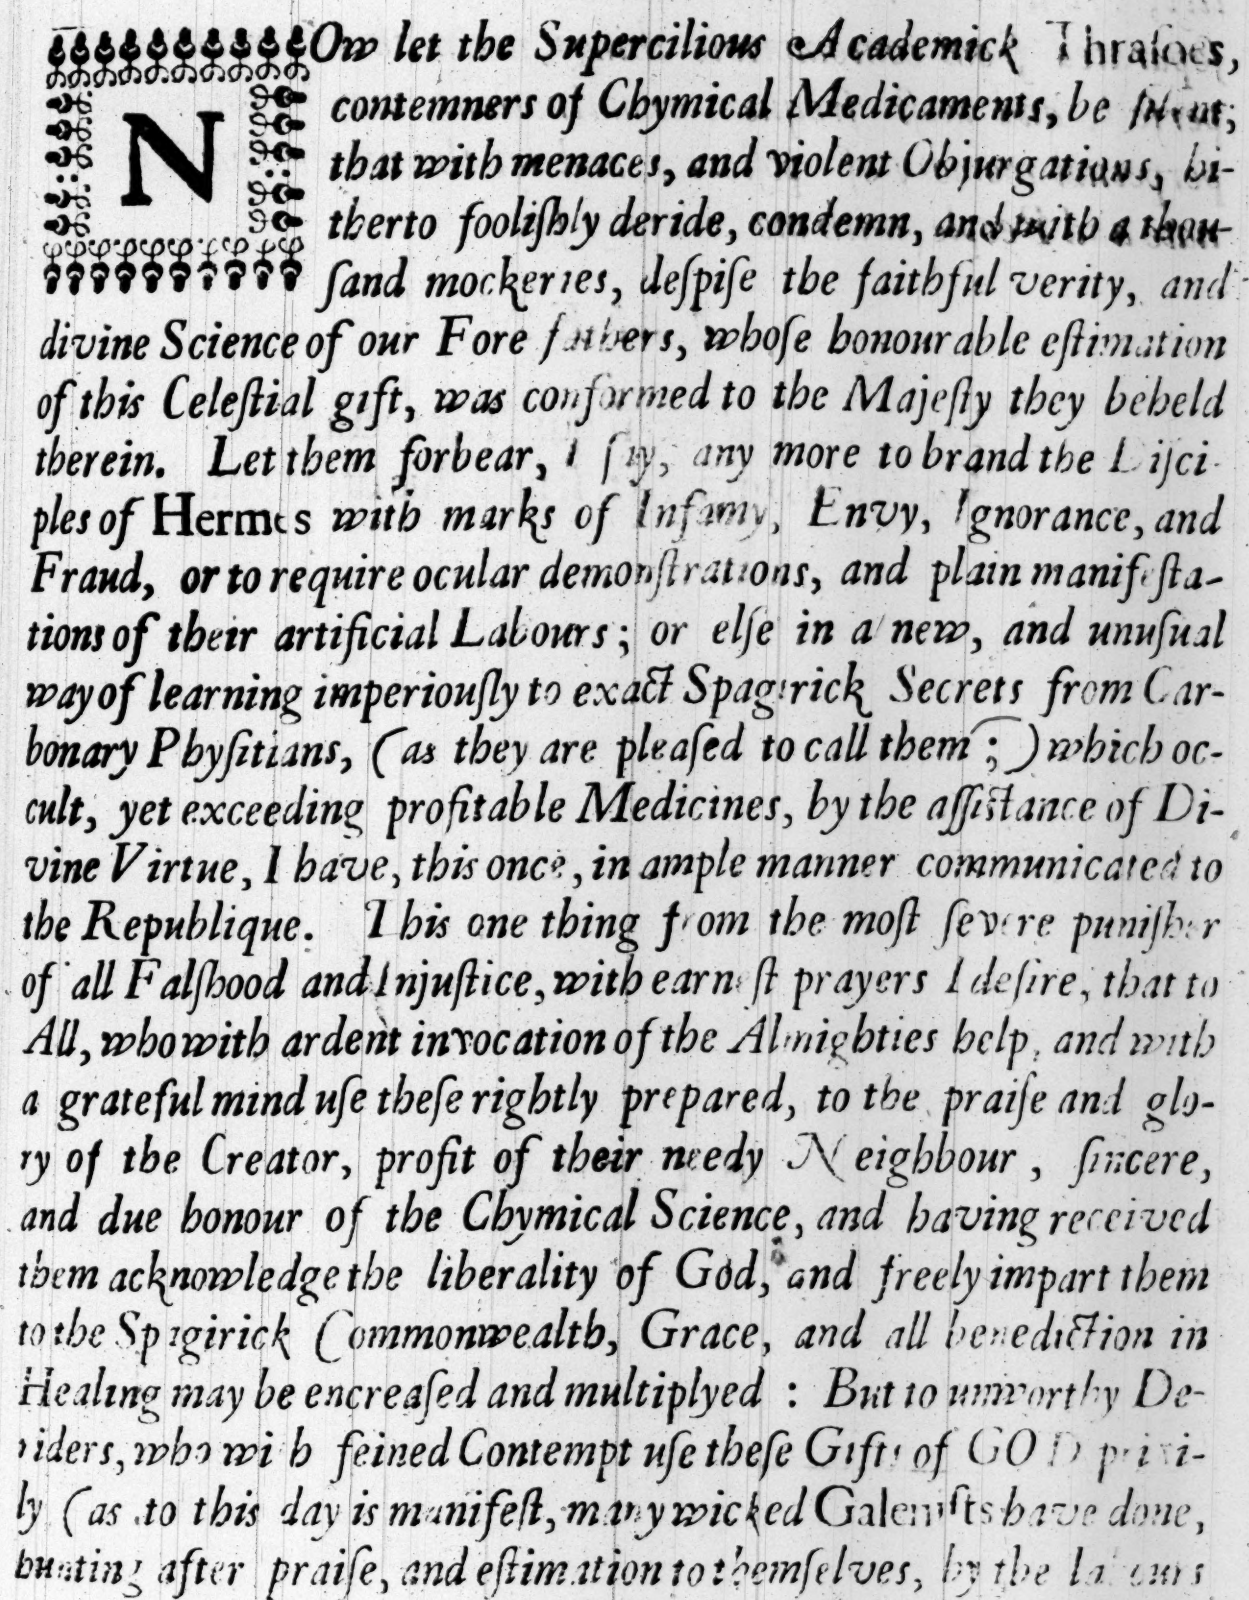 NOw let the Supercilious Academick Thrasoes,
contemners of Chymical Medicaments, be silent;
that with menaces, and violent Objurgations, hi-
therto fooliſhly deride, condemn, and with a thou-
ſand mockeries, deſpiſe the faithful verity, and
divine Science of our Fore fathers, whoſe honourable eſtimation
of this Celeſtial gift, was conformed to the Majeſty they beheld
therein. Let them forbear, I ſay, any more to brand the Diſci-
ples of Hermes with marks of Infamy, Envy, Ignorance, and
Fraud, or to require ocular demonſtrations, and plain manifeſta-
tions of their artificial Labours; or elſe in a new, and unuſual
way of learning imperiouſly to exact Spagirick Secrets from Car-
bonary Phyſitians, (as they are pleaſed to call them;) which oc-
cult, yet exceeding profitable Medicines, by the aſſiſtance of Di-
vine Virtue, I have, this once, in ample manner communicated to
the Republique. This one thing from the moſt ſevere puniſher
of all Falſhood and Injuſtice, with earneſt prayers I deſire, that to
All, who with ardent invocation of the Almighties help, and with
a grateful mind uſe theſe rightly prepared, to the praiſe and glo-
ry of the Creator, profit of their needy Neighbour, ſincere,
and due honour of the Chymical Science, and having received
them acknowledge the liberality of God, and freely impart them
to the Spagirick Commonwealth, Grace, and all benediction in
Healing may be encreaſed and multiplyed : But to unworthy De-
riders, who with feined Contempt uſe theſe Gifts of GOD privi-
ly (as to this day is manifeſt, many wicked Galeniſts have done,
hunting after praiſe, and eſtimation to themſelves, by the labours